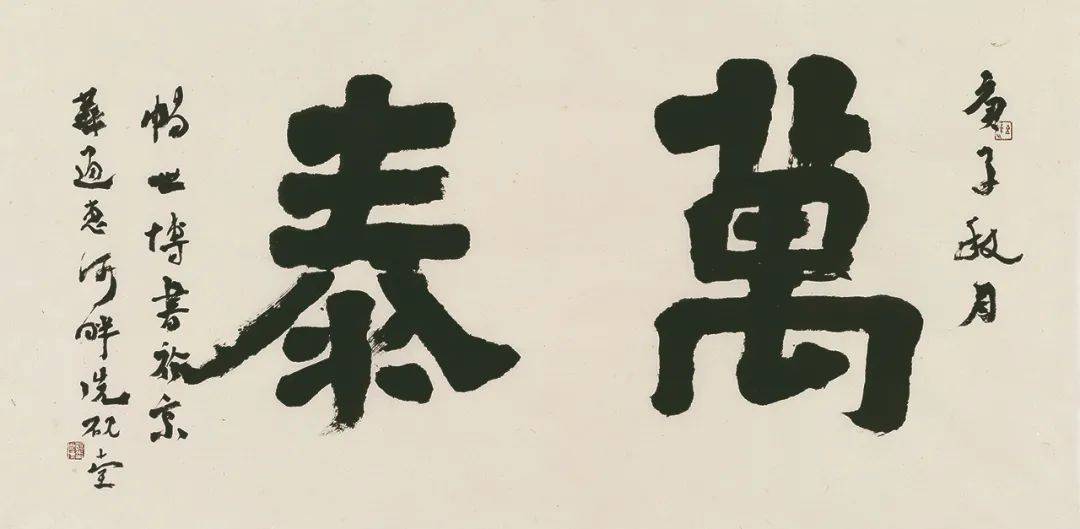 庚子秋月
萬泰
楊世博書於京
華通惠河畔洗砚堂